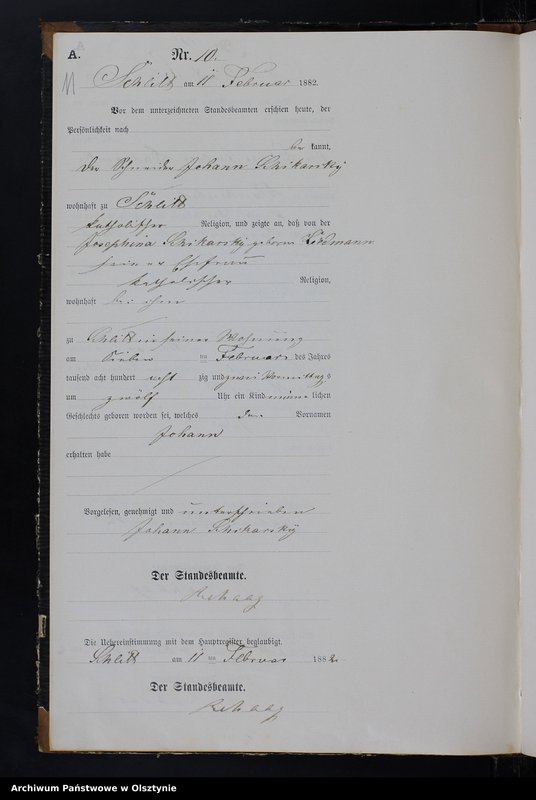 A.
Nr. 10.
11
Schlitt am 11 Februar 1882.
Vor dem unterzeichneten Standesbeamten erschien heute, der
Persönlichkeit nach
be kannt,
der Schneider Johann
wohnhaft zu Schlitt
katholischer Religion, und zeigte an, daß von der
Josephina geborene
seiner Ehefrau
katholischer Religion,
wohnhaft bei ihm
zu Schlitt in seiner Wohnung
am sieben ten Februar des Jahres
tausend acht hundert acht zig und zwei Vormittags
um zwölf Uhr ein Kind männ lichen
Geschlechts geboren worden sei, welches den Vornamen
Johann
erhalten habe
Vorgelesen, genehmigt und unterschrieben
Johann
Der Standesbeamte.
Rehaag
Die Uebereinstimmung mit dem Hauptregister beglaubigt.
Schlitt am 11 ten Februar 1882.
Der Standesbeamte.
Rehaag
Archiwum Państwowe w Olsztynie